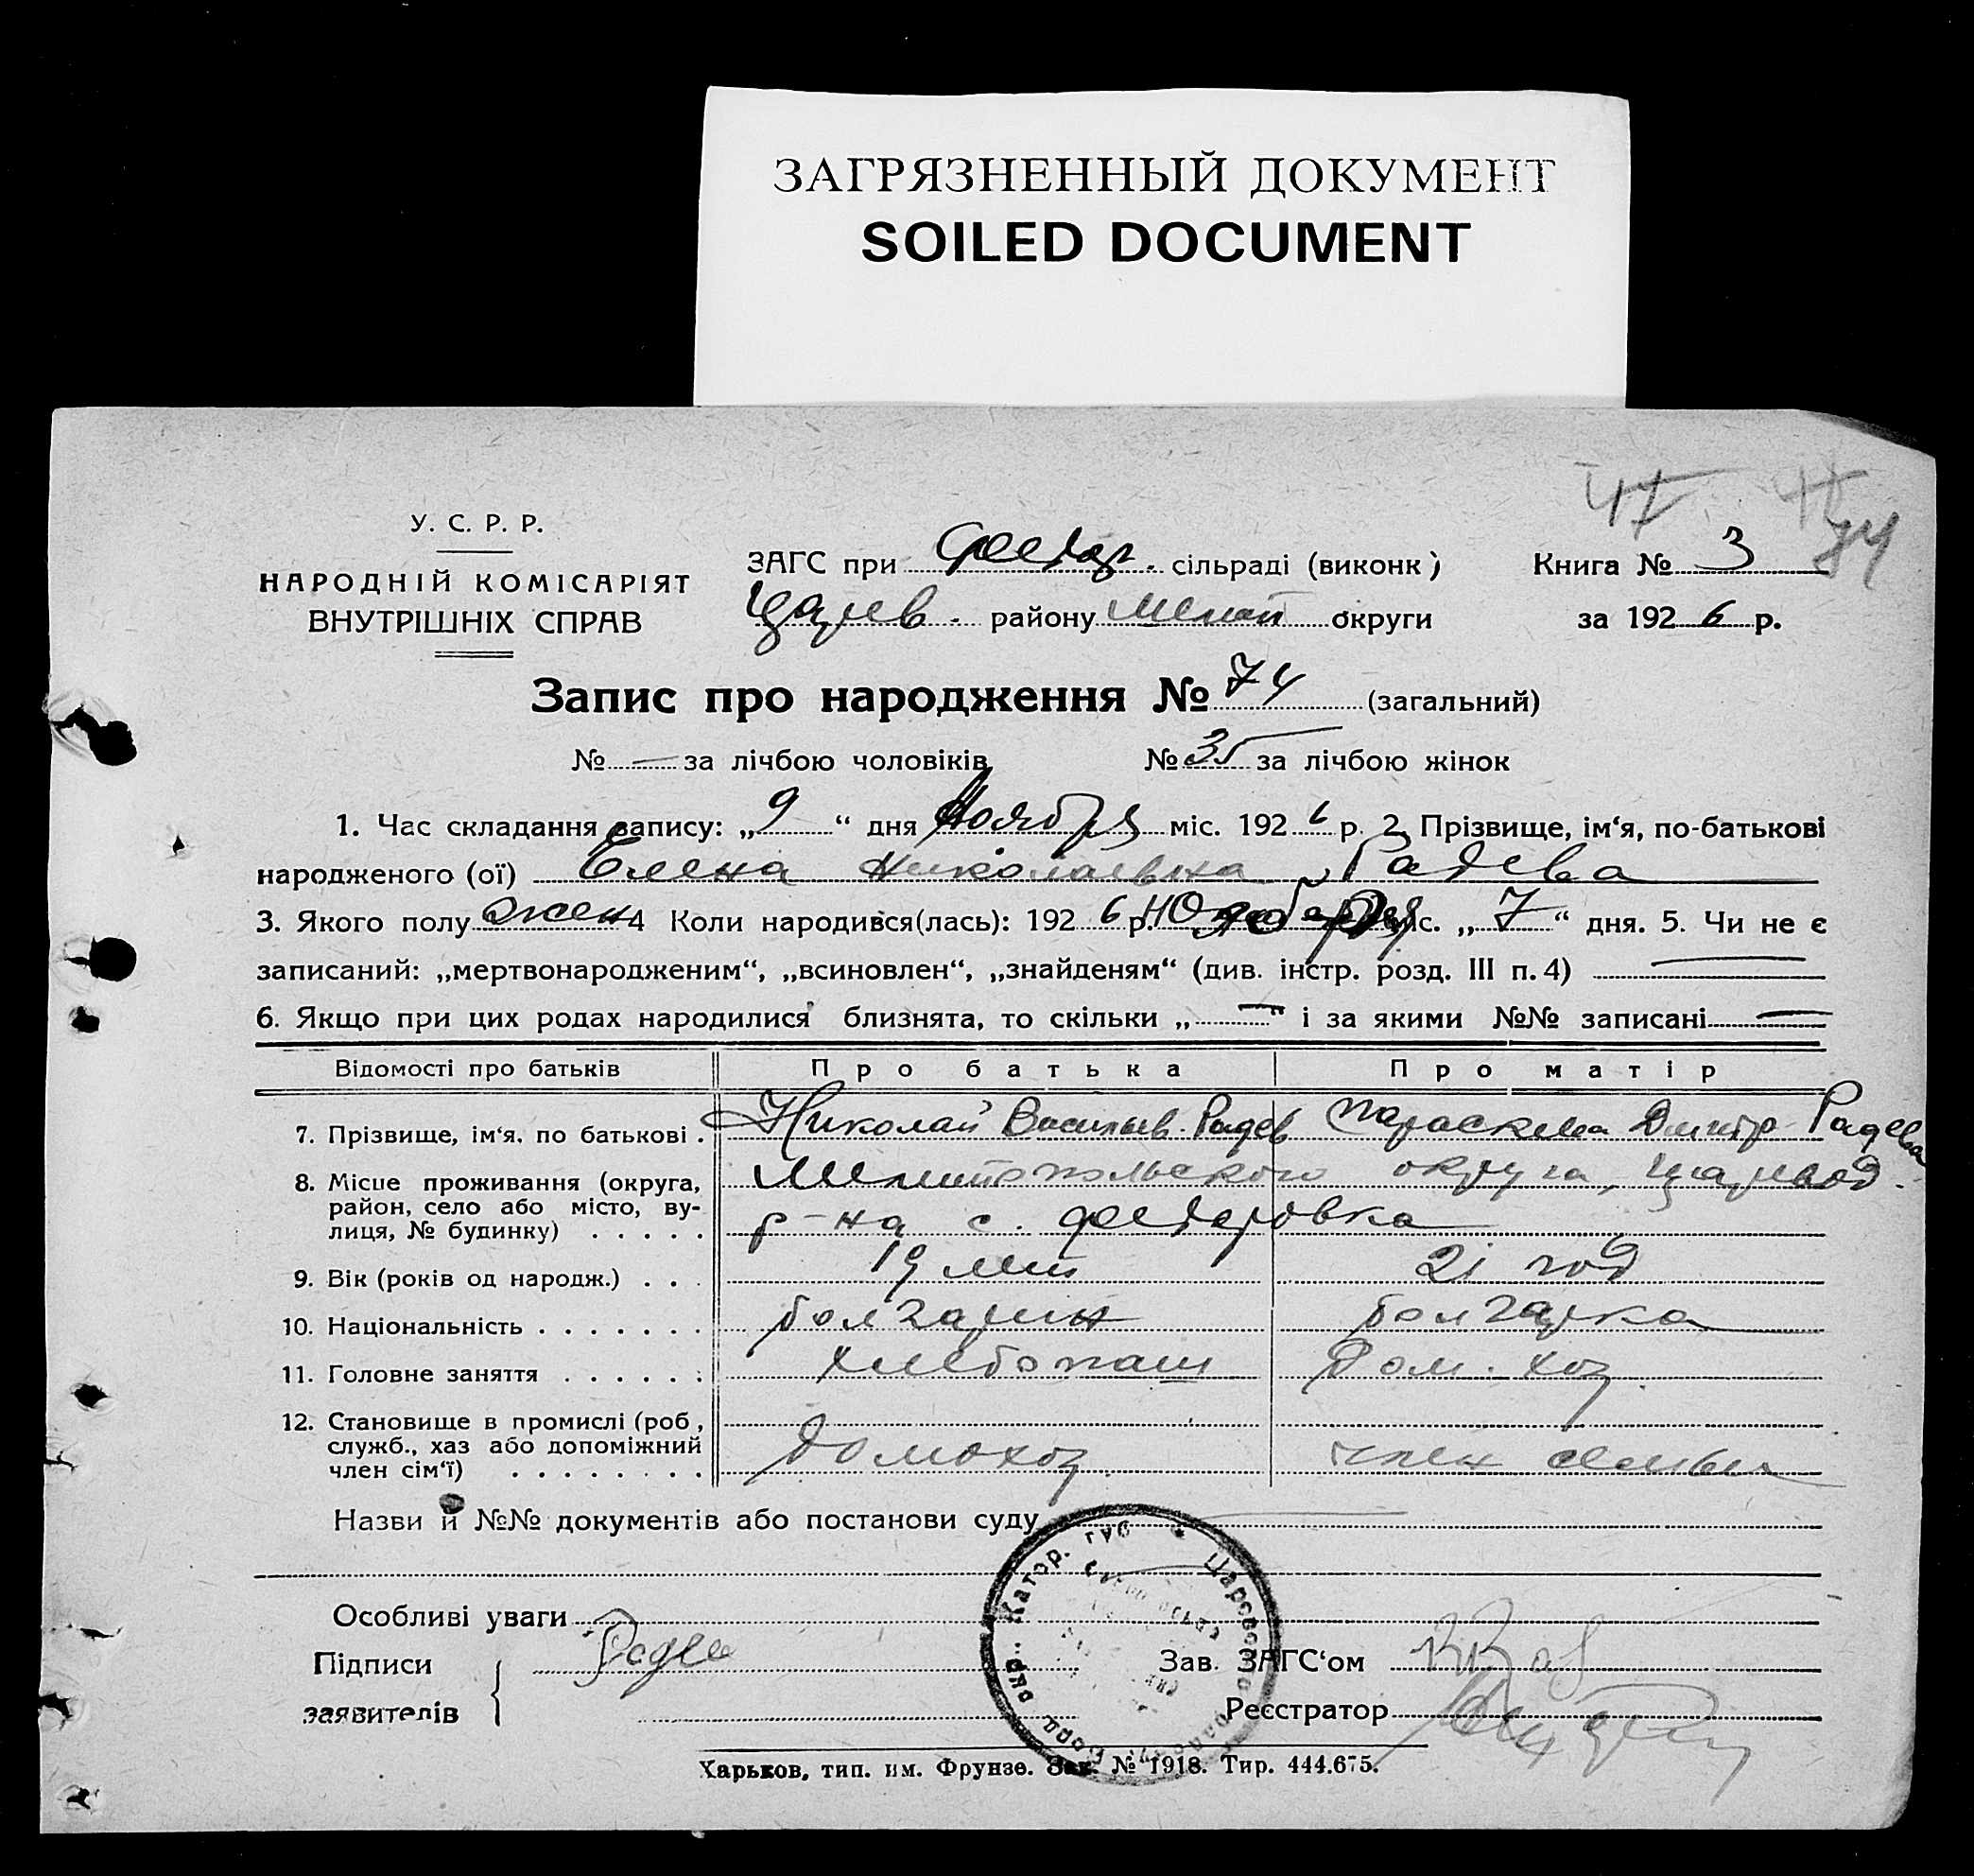 ЗАГРЯЗНЕННЫЙ ДОКУМЕНТ
SOILED DOCUMENT
47
74
У. С. Р. Р.
НАРОДНІЙ КОМІСАРІЯТ
ВНУТРІШНІХ СПРАВ
ЗАГС при Федор. сільраді (виконк)
Царев. району Мелит округи
Книга № 3
за 1926 р.
Запис про народження № 74 (загальний)
№ — за лічбою чоловіків № 35 за лічбою жінок
1. Час складання запису: „9“ дня Ноября міс. 1926 р. 2. Прізвище, ім‘я, по-батькові
народженого (ої) Елена Николаевна Радева
3. Якого полу жен 4 Коли народився(лась): 1926 р. Ноября міс. „7“ дня. 5. Чи не є
записаний: „мертвонародженим“, „всиновлен“, „знайденям“ (див. інстр. розд. III п. 4) —
6. Якщо при цих родах народилися близнята, то скільки „—“ і за якими №№ записані —
Відомості про батьків Про батька Про матір
7. Прізвище, ім‘я, по батькові . Николай Васильев. Радев Параскева Дмитр. Радева
8. Місце проживання (округа, район, село або місто, вулиця, № будинку) . . . . . Мелитопольского округа, Царевод.
р-на с. Федоровка
9. Вік (років од народж.) . . . 19 лет 21 год
10. Національність . . . . . . . болгарин болгарка
11. Головне заняття . . . . . . хлебопаш Дом. хоз.
12. Становище в промислі (роб, служб., хаз або допоміжний член сім‘ї) . . . . . . . . домохоз. член семьи
Назви й №№ документів або постанови суду
Особливі уваги
Підписи
заявителів
Радев
Зав. ЗАГС‘ом
Реєстратор
Катер. губ * Царево
Харьков, тип. им. Фрунзе. Зак. № 1918. Тир. 444.675.